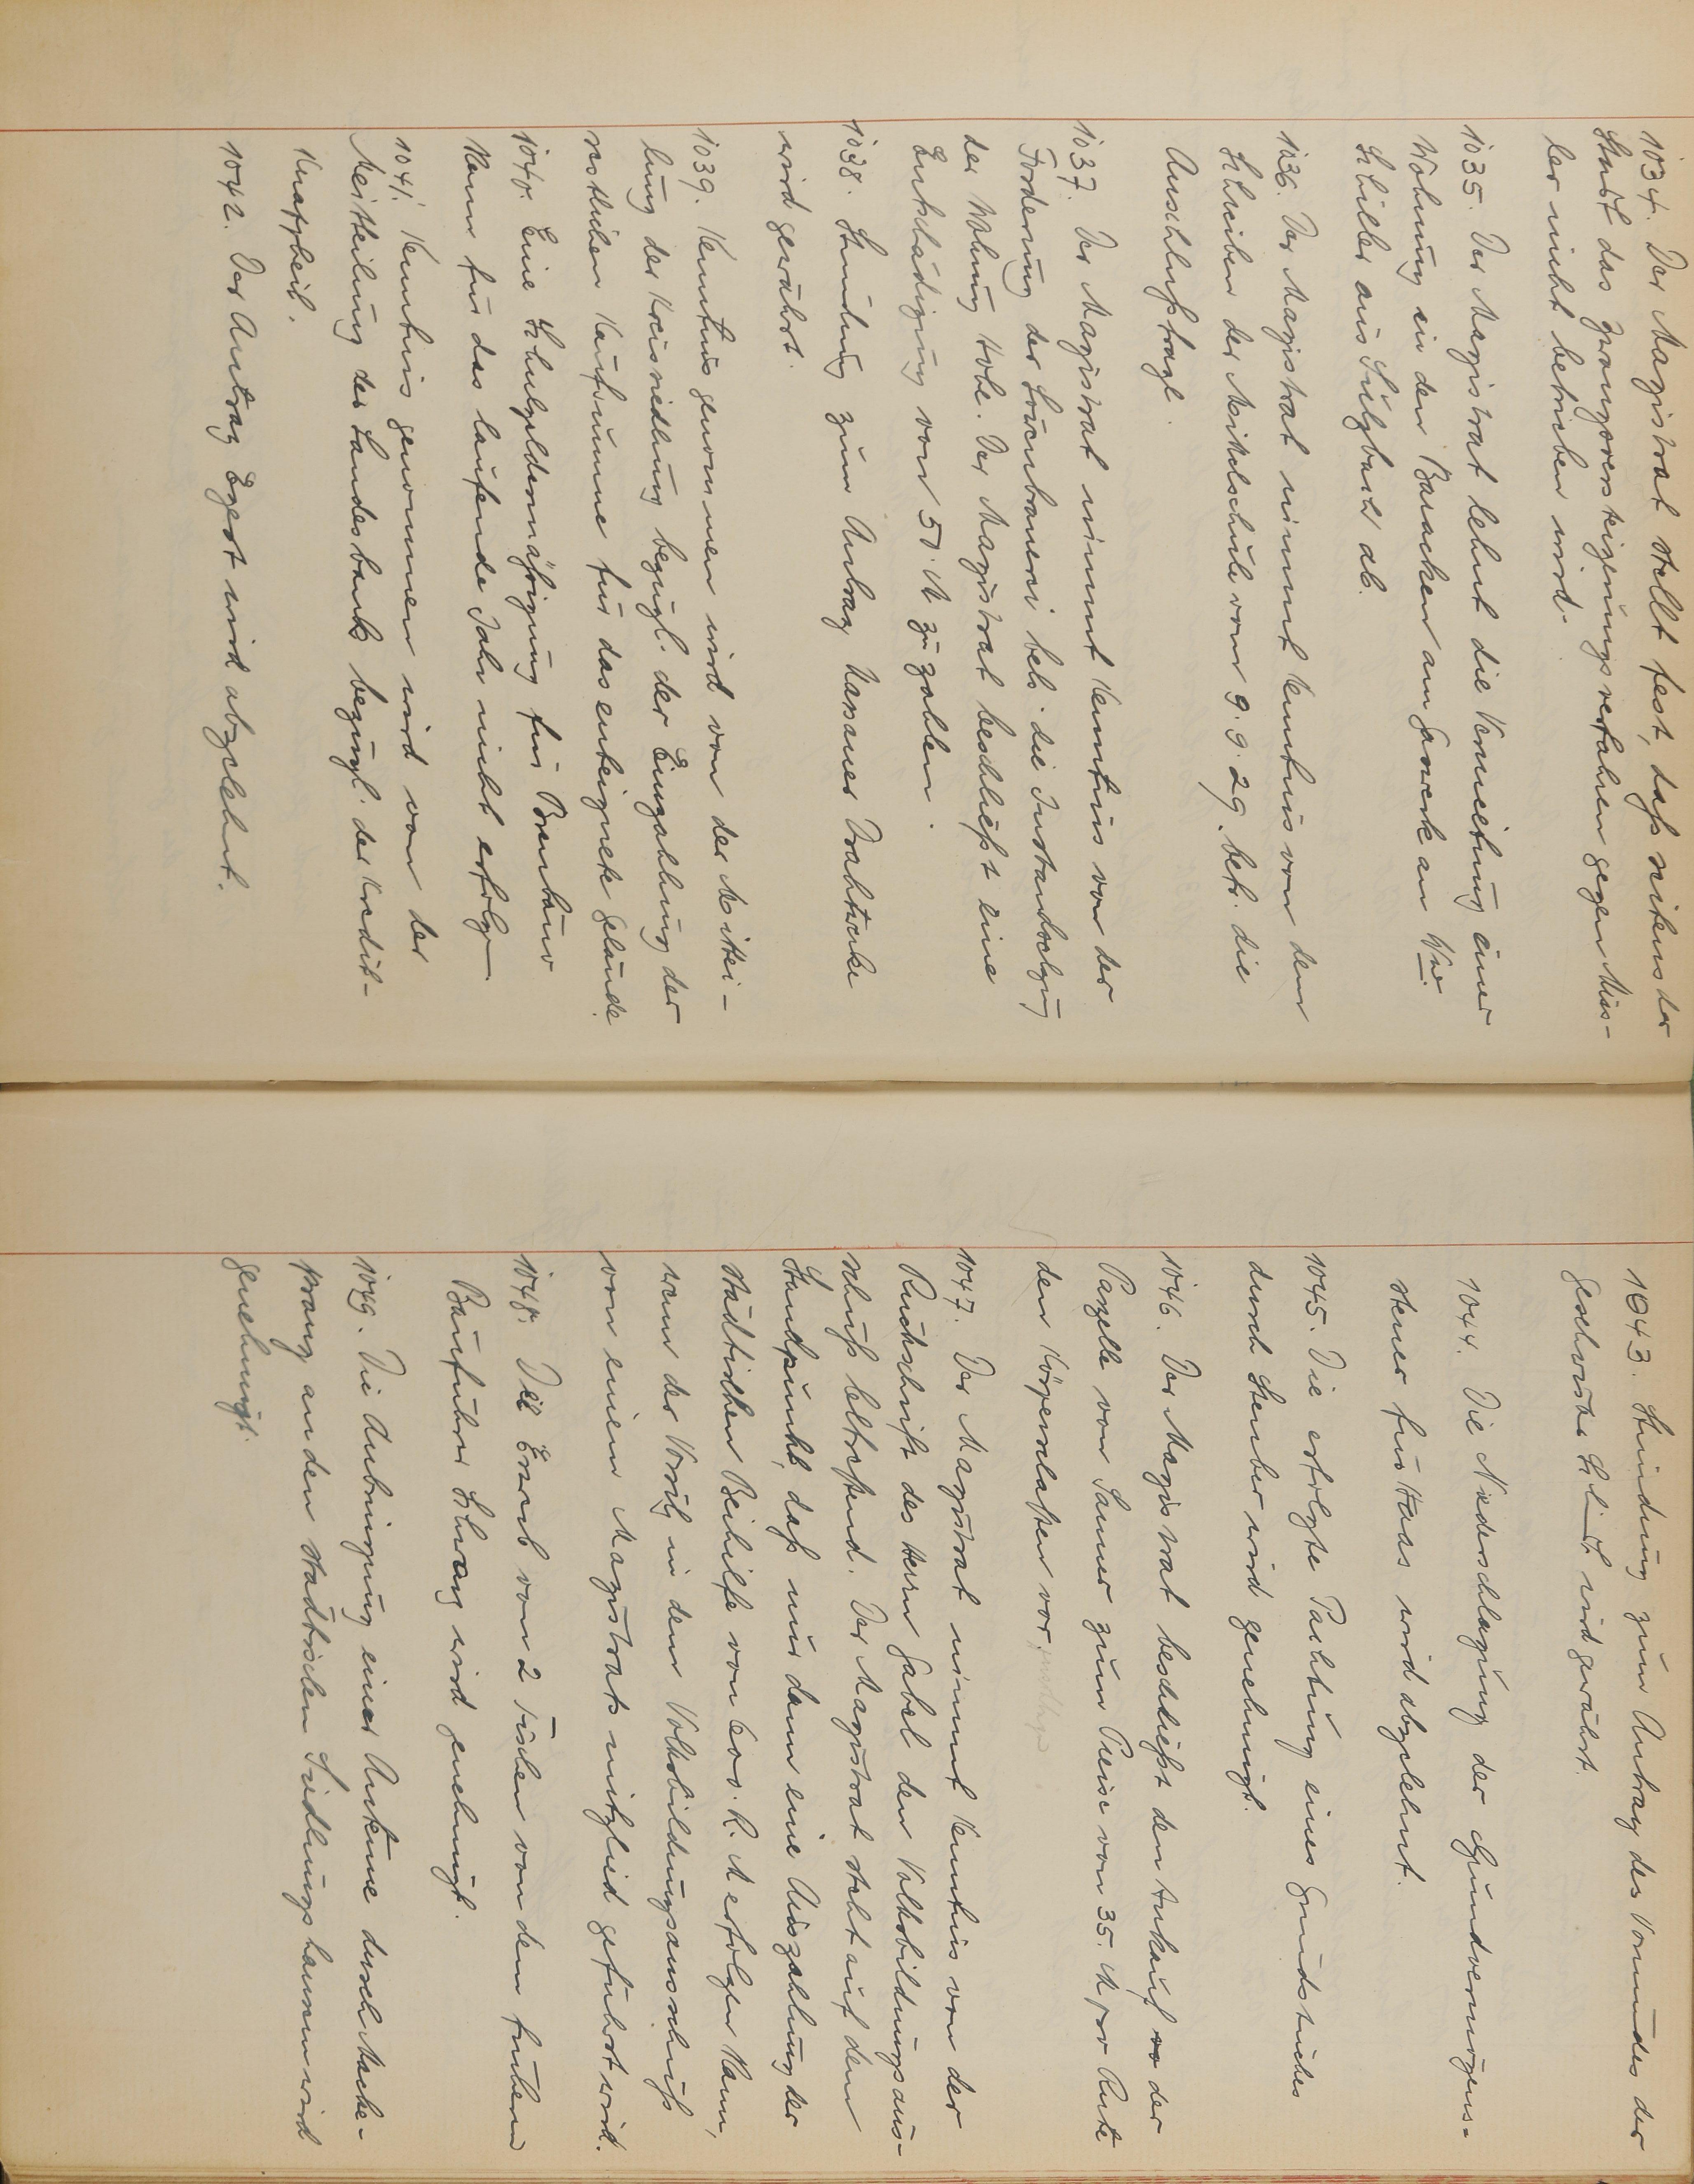 1034. Der Magistrat stellt fest, daß seitens der
Stadt das Zwangsversteigerungsverfahren gegen Miss-
ler nicht betrieben wird.
1035. Der Magistrat lehnt die Vermietung einer
Wohnung in den Baracken am Gaswerk an Ww.
Schiller aus Sulzbach ab.
1036. Der Magistrat nimmt Kenntnis von dem
Schreiben der Mittelschule vom 9.9.29. betr. die
Anschlußfrage.
1037. Der Magistrat nimmt Kenntnis von der
Forderung der Löwenbrauerei betr. die Instandsetzung
der Wohnung Hohe. Der Magistrat beschließt eine
Entschädigung von 50. M zu zahlen.
1038. Stundung zum Antrag Nassauer Drahtwerke
wird gewährt.
1039. Kenntnis genommen wird von der Mittei-
lung der Kreissiedlung bezügl. der Einzahlung der
restlichen Kaufsumme für das enteignete Gelände.
1040. Eine Schulgeldermäßigung für Brentano
kann für das laufende Jahr nicht erfolgen
1041. Kenntnis genommen wird von der
Mitteilung der Landesbank bezügl. der Kredit-
Knappheit.
1042. Der Antrag Egert wird abgelehnt.
1043. Stundung zum Antrag des Vormundes der
Geschwister Schmidt wird gewährt.
1044. Die Niederschlagung der Grundvermögens-
steuer für Haas wird abgelehnt.
1045. Die erfolgte Pachtung eines Grundstückes
durch Steuber wird genehmigt.
1046. Der Magistrat beschließt den Ankauf der
Parzelle von Sauer zum Preise von 35. M pro Rute
den Körperschaften vor
1047. Der Magistrat nimmt Kenntnis von der
Rückschrift des Herrn Gabel den Volksbildungsaus-
schuß betreffend. Der Magistrat steht auf dem
Standpunkt, daß nur dann eine Auszahlung der
städtischen Beihilfe von 600. R. M erfolgen kann,
wenn der Vorsitz in dem Volksbildungsausschuß
von einem Magistratsmitglied geführt wird.
1048. Der Erwerb von 2 Tischen von dem frühern
Bauführer Schwarz wird genehmigt.
1049. Die Anbringung einer Antenne durch Macke-
prang an den städtischen Siedlungshäusern wird
genehmigt.